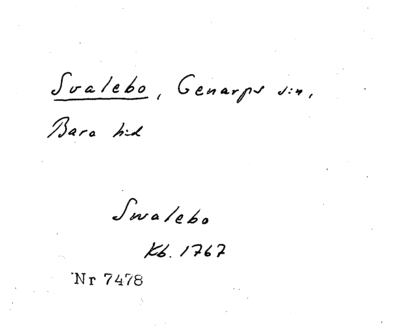 Svalebo, Genarps sn,
Bara hd
Swalebo
Kb. 1767
Nr 7478